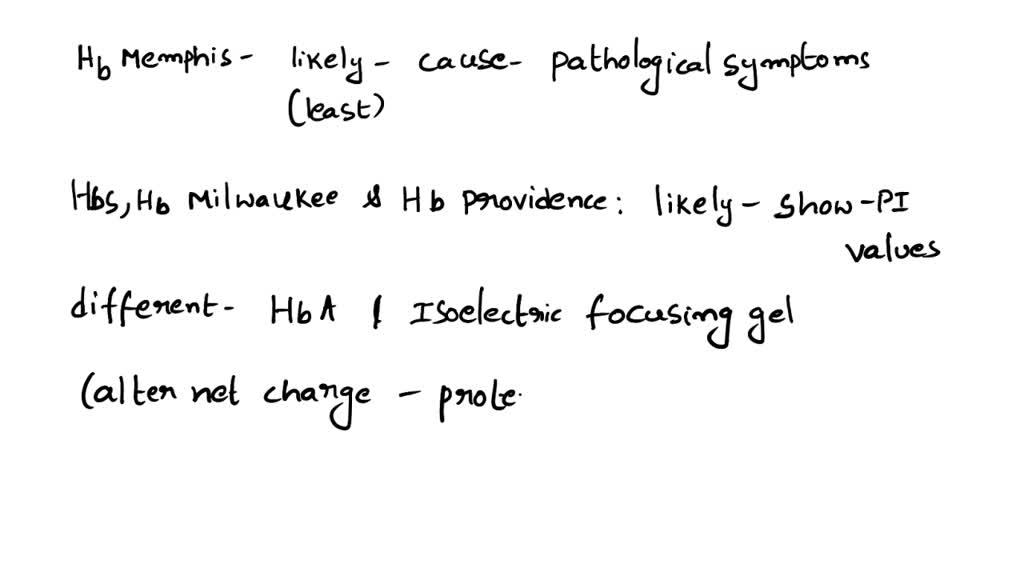 Hb Memphis - likely - cause - pathological symptoms
(least)
HbS, Hb Milwaukee & Hb providence: likely - show - PI
values
different - HbA & Isoelectric focusing gel
(alter net change - prote